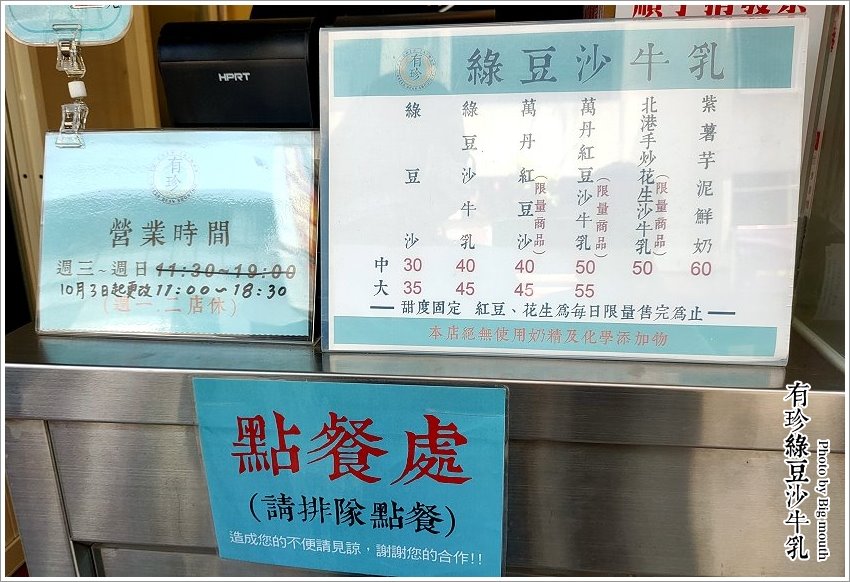 元
HPRT
有珍
營業時間
週三~週日 11:30~19:00
10月3日起更改11:00~18:30
(週一.二店休)
有珍
綠豆沙牛乳
綠豆沙
綠豆沙牛乳
萬丹紅豆沙(限量商品)
萬丹紅豆沙牛乳(限量商品)
北港手炒花生沙牛乳(限量商品)
紫薯芋泥鮮奶
中 30 40 40 50 50 60
大 35 45 45 55
甜度固定 紅豆、花生為每日限量售完為止
本店絕無使用奶精及化學添加物
點餐處
(請排隊點餐)
造成您的不便請見諒，謝謝您的合作!!
有珍綠豆沙牛乳
Photo by Big mouth